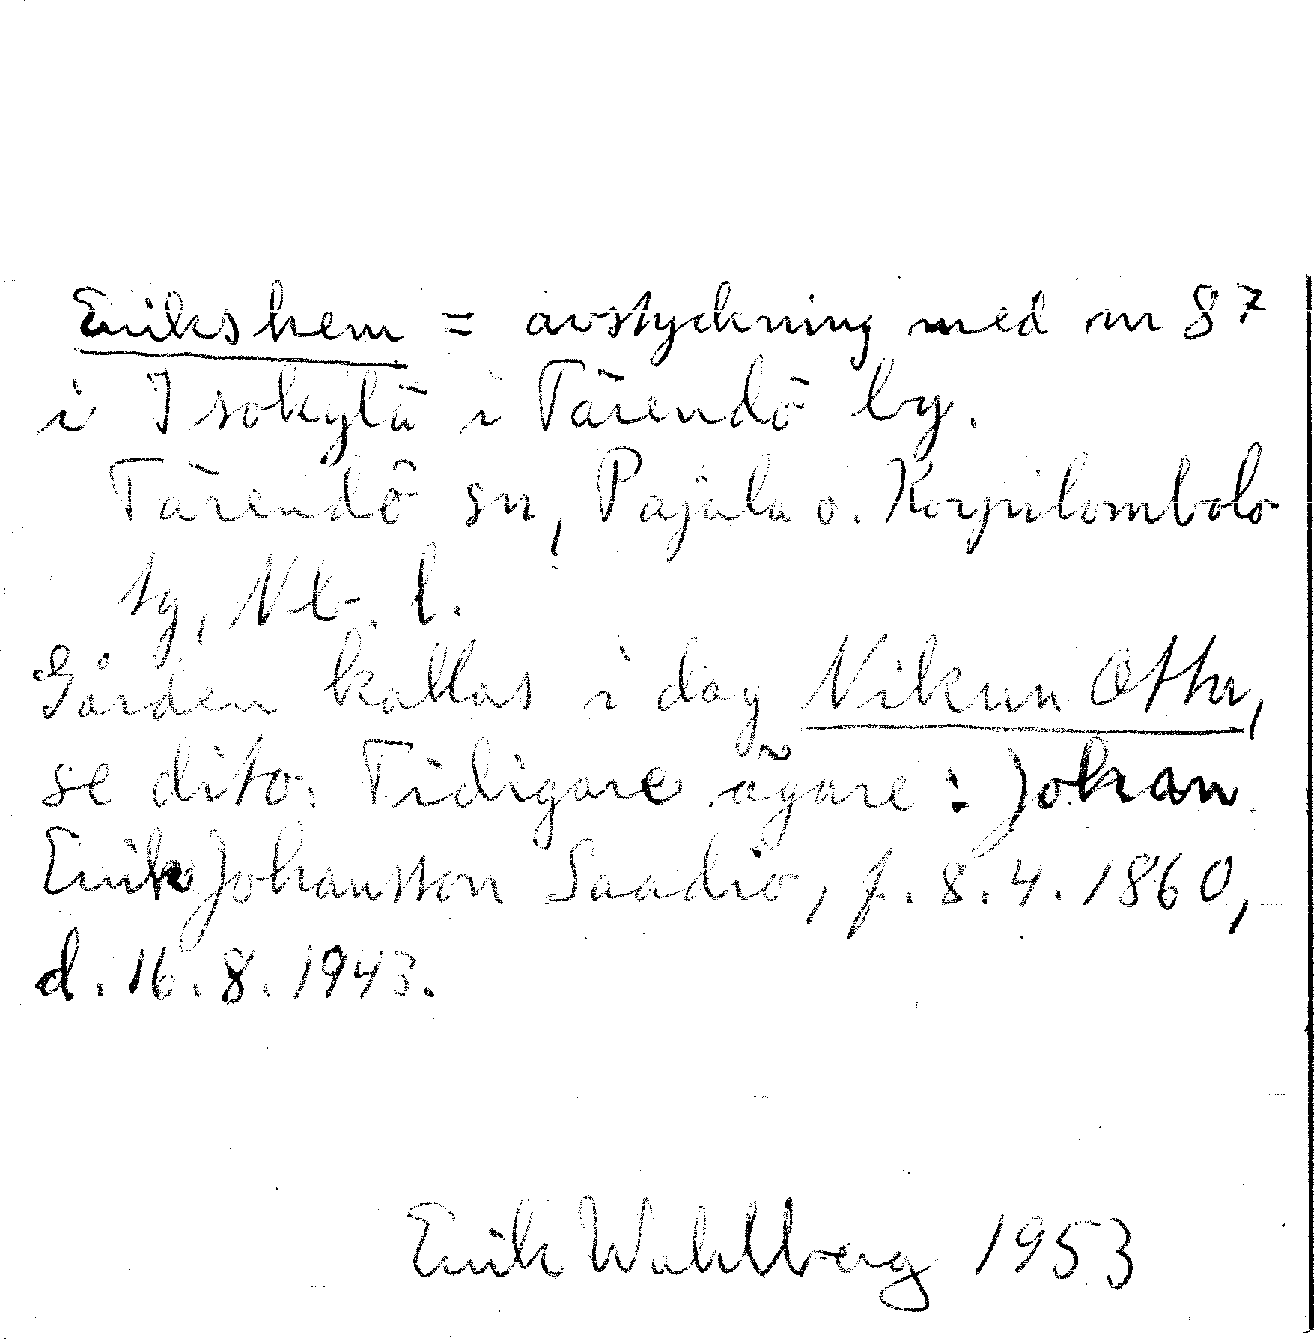 Erikshem = avstyckning med nr 87
i Isokylä i Tärendö by.
Tärendö sn, Pajala o. Korpilombolo
tg, Nb. l.
Gården kallas i dag Nikun Otto,
se dito. Tidigare ägare: Johan
Erik Johansson Saadio, f. 8.4.1860,
d. 16.8.1943.
Erik Wahlberg 1953